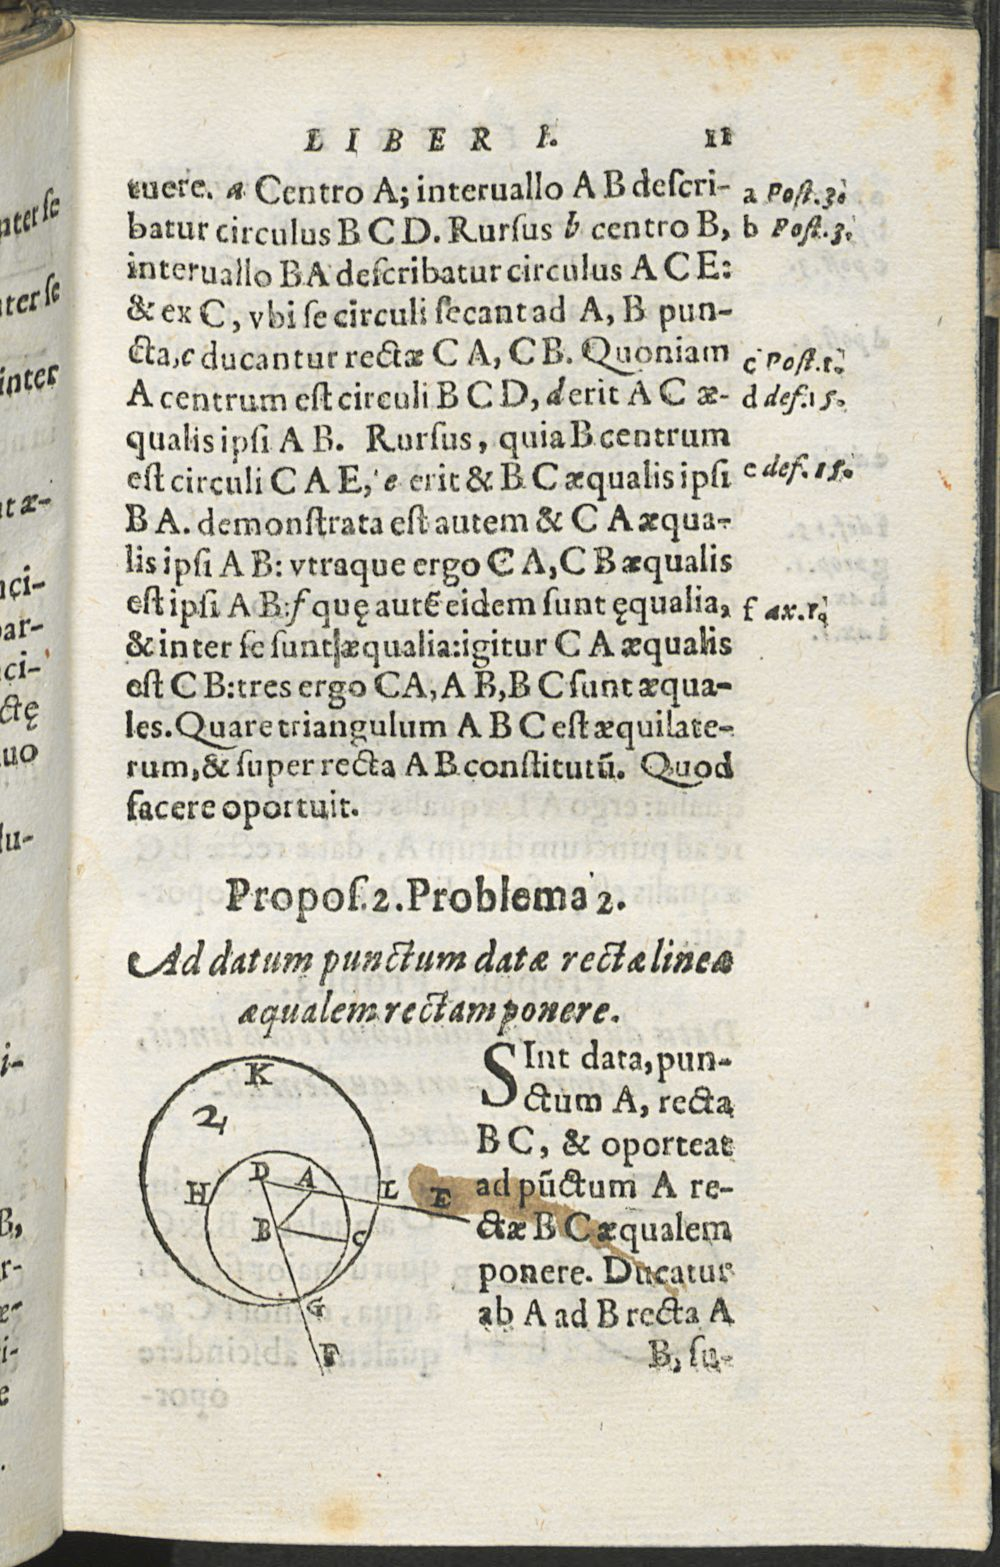 LIBER I. 11
tuere. a Centro A; interuallo A B descri- a Post.3.
batur circulus B C D. Rursus b centro B, b Post.3.
interuallo BA describatur circulus A C E:
& ex C, vbi se circuli secant ad A, B pun-
cta, c ducantur rectæ C A, C B. Quoniam c Post.1.
A centrum est circuli B C D, d erit A C æ- d def.15.
qualis ipsi A B. Rursus, quia B centrum
est circuli C A E, e erit & B C æqualis ipsi e def.15.
B A. demonstrata est autem & C A æqua-
lis ipsi A B: vtraque ergo C A, C B æqualis
est ipsi A B: f quę autē eidem sunt ęqualia, f ax.1.
& inter se sunt æqualia: igitur C A æqualis
est C B: tres ergo CA, A B, B C sunt æqua-
les. Quare triangulum A B C est æquilate-
rum, & super recta A B constitutū. Quod
facere oportuit.
Propos. 2. Problema 2.
Ad datum punctum datæ rectæ lineæ
æqualem rectam ponere.
SInt data, pun-
ctum A, recta
B C, & oporteat
ad pūctum A re-
ctæ B C æqualem
ponere. Ducatur
ab A ad B recta A
B, su-
K
2
D A
H L E
B C
G
F
nter se
nter se
inter
nt æ-
nci-
par-
nci-
ctę
uo
du-
i-
B,
r-
e-
i-
e